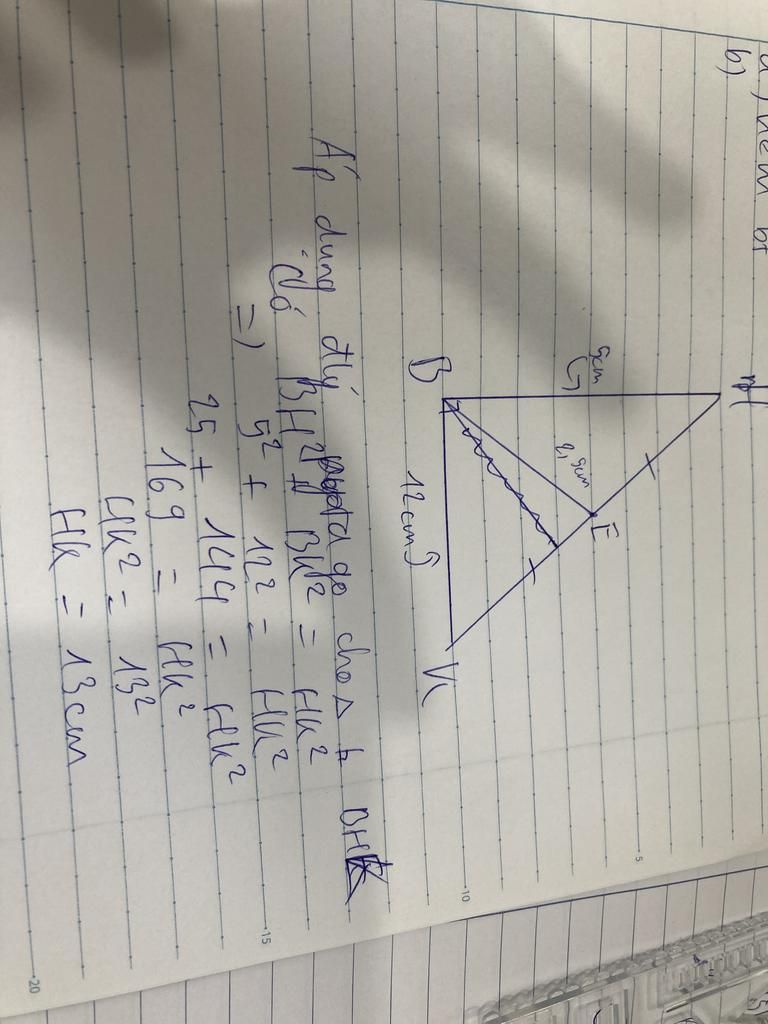 b)
H
5cm
2,5cm
E
B
12cm
K
Áp dụng đlý pytago cho Δ BHK
Có BH² + BK² = HK²
=) 5² + 12² = HK²
25 + 144 = HK²
169 = HK²
HK² = 13²
HK = 13cm
5
10
15
20